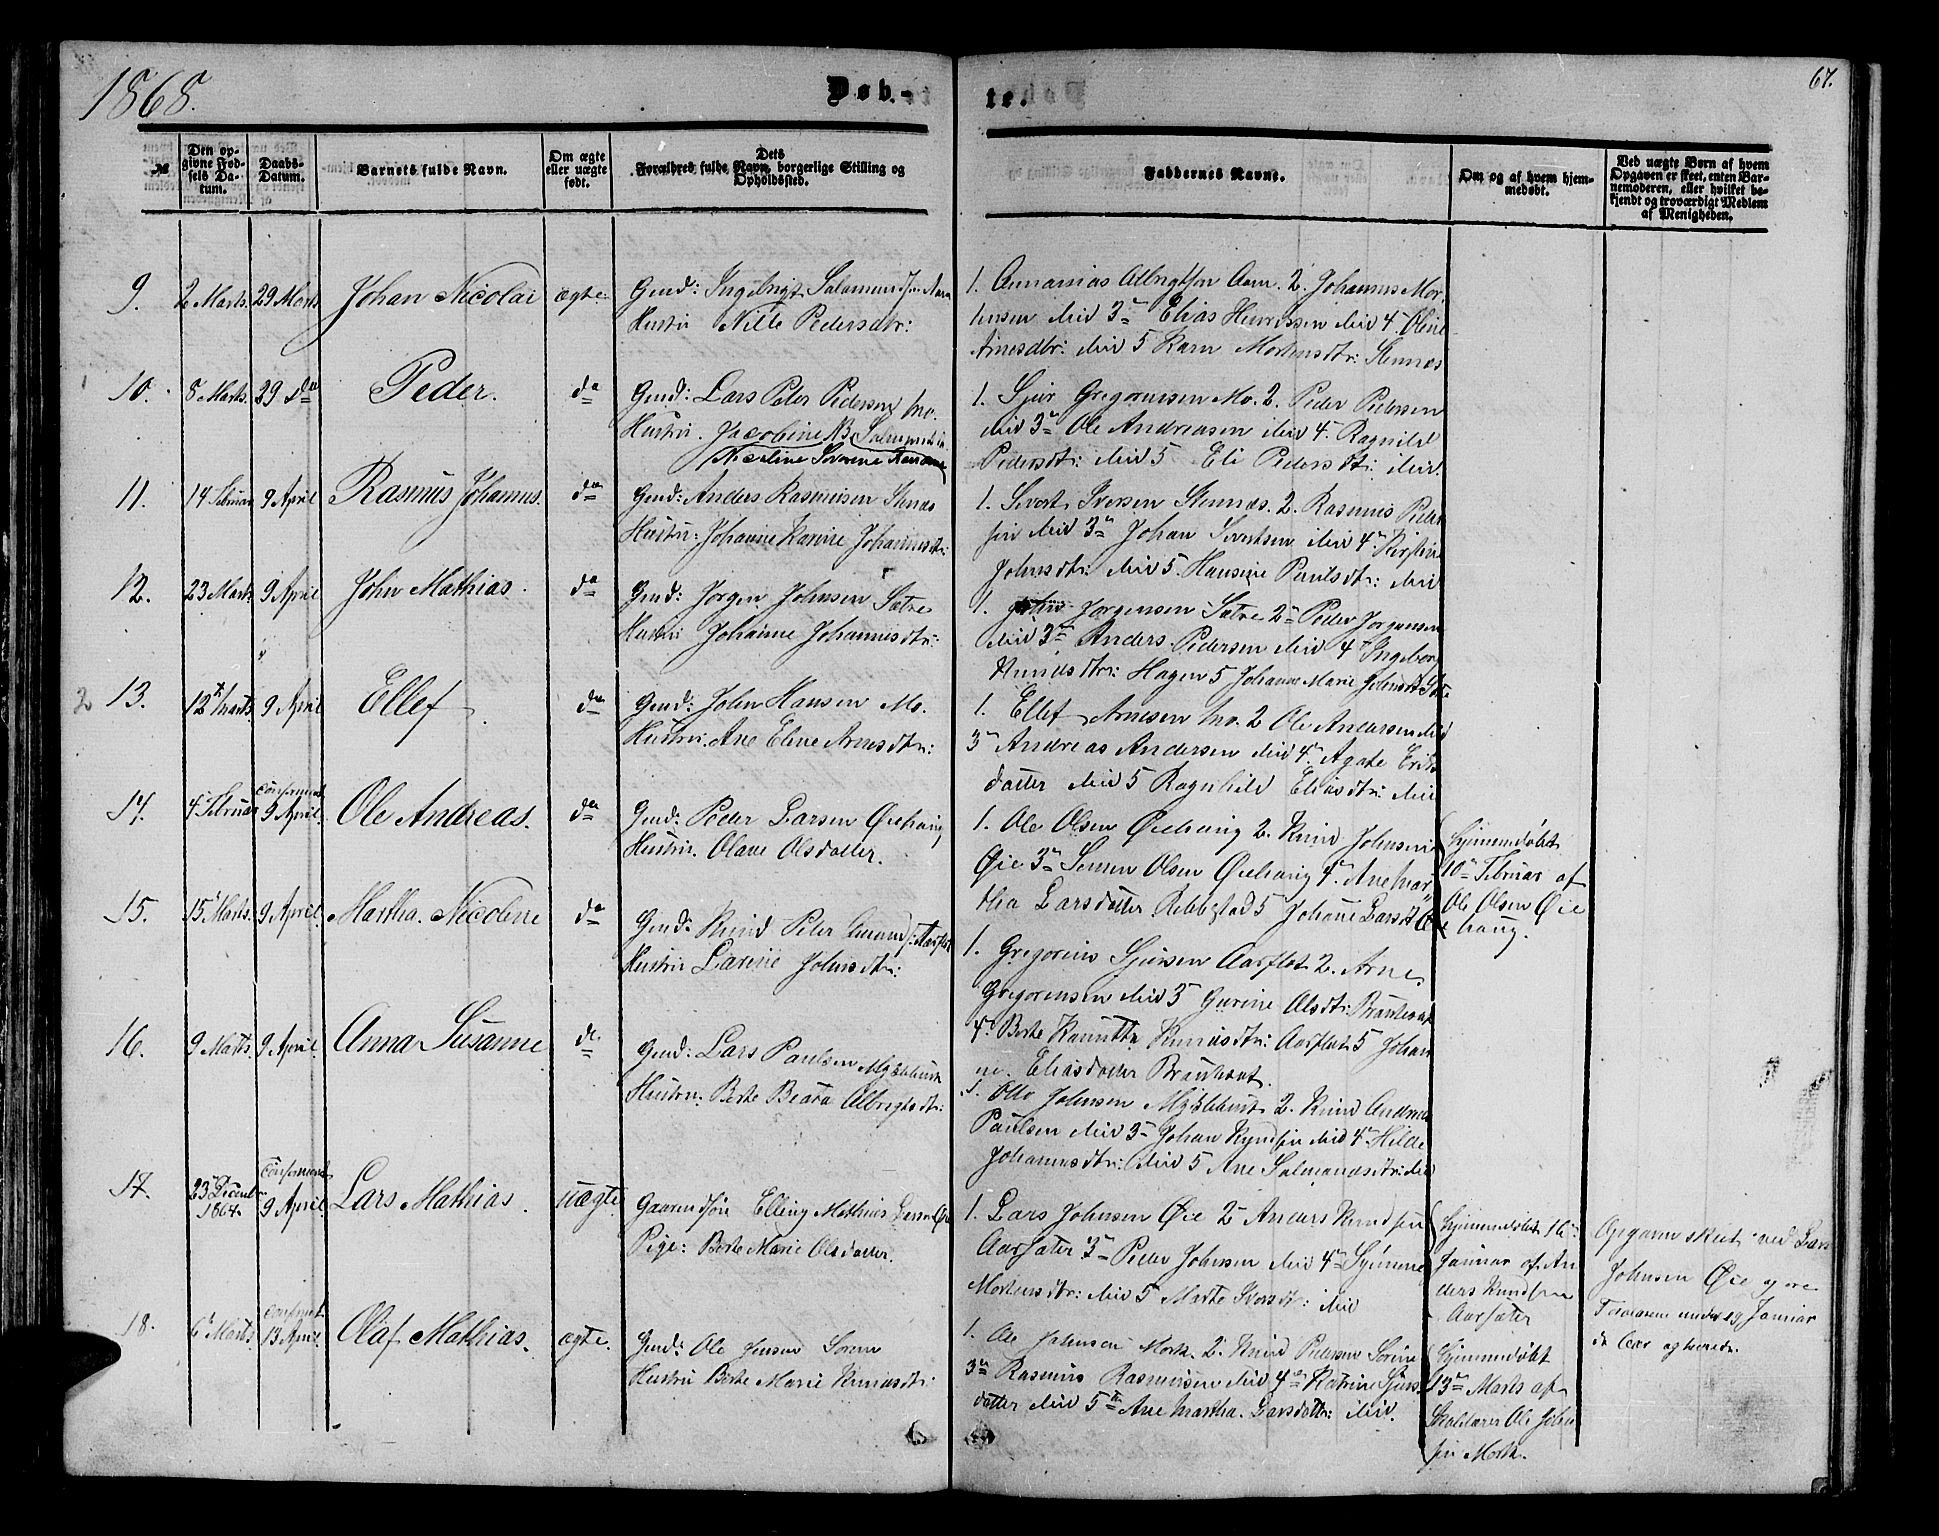 1868.
Døb-
te.
67.
№
Den opgivne Fødsels Datum.
Daabs-Datum.
Barnets fulde Navn.
Om ægte eller uægte født.
Dets Forældres fulde Navn, borgerlige Stilling og Opholdssted.
Faddernes Navne.
Om og af hvem hjemmedøbt.
Ved uægte Børn af hvem Opgaven er skeet, enten Barnemoderen, eller hvilket bekjendt og troværdigt Medlem af Menigheden.
9. 2 Marts 29 Marts Johan Nicolai ægte
Gmd: Ingebrigt Salamons
Hustru Nille Pedersdtr:
1. Annanias Albrigtsen Aam. 2. Johannes Mor-
tensen ibid 3 Elias Henriksen ibid 4. Oline
Arnesdtr: ibid 5 Karn Mortensdtr: Stennes
10. 8 Marts. 29 do Peder. do
Gmd: Lars Peter Pedersen Mo.
Hustru. Jacobine NB
Nicoline Severine
1. Sjur Gregoriussen Mo. 2. Peder Pedersen
ibid 3 Ole Andreasen ibid 4. Ragnild
Pedersdtr: ibid 5 Eli Pedersdtr: ibid.
11. 14 Februar 9 April Rasmus Johannes. do
Gmd: Anders Rasmussen Stenes
Hustru: Johanne Karine Johannesdtr:
1. Sivert Iversen Stennes. 2. Rasmus Peder
sen ibid 3 Johan Sivertsen ibid 4 Kirstine
Johnsdtr: ibid 5. Hansine Paulsdtr: ibid
12. 23 Marts 9 April John Mathias. do
Gmd: Jørgen Johnsen Sætre
Hustru Johanne Johannesdtr:
1. John Jørgensen Sætre 2 Peder Jørgensen
ibid 3 Anders Pedersen ibid 4 Ingeborg
Knudsdtr: Hagen 5 Johanne Marie Johnsdtr
2 13. 12 Marts 9 April Ellef do
Gmd: John Hansen Mo.
Hustru: Ane Eline Arnesdtr:
1. Ellef Arnesen Mo. 2 Ole Andersen ibid
3 Andreas Andersen ibid 4 Agate Eriks
datter ibid 5 Ragnhild Eliasdtr: ibid
14. 4 Februar Confirmeret 9 April. Ole Andreas. do
Gmd: Peder Larsen Øiehaug
Hustru. Olave Olsdatter.
1. Ole Olsen Øiehaug 2. Knud Johnsen
Øie 3 Olsen Øiehaug 4. Ane Mar
tha Larsdatter Rebbestad 5 Johane Larsdtr Øie
Hjemmedøbt
10 Februar af
Ole Olsen Øie
haug.
15. 15 Marts. 9 April. Martha Nicoline do
Gmd. Knud Peter Aarflot
Hustru Larine Johnsdtr:
1. Gregorius Sjursen Aarflot 2. Arne
Gregoriusen ibid 3 Gurine Olsdtr: Brauteset
4. Berte Knudsdtr: Aarflot 5 Johan
ne Eliasdatter Brauteset.
16. 9 Marts. 9 April. Anna Susanne do
Gmd: Lars Paulsen Myklebust
Hustru: Berte Beata Albrigtsdtr:
1. Otto Johnsen Myklebust 2. Knud Andreas
Paulsen ibid 3 Johan Knudsen ibid 4 Hilde
Johannesdtr: ibid 5 Ane Salmonsdtr: ibid
17. 23 Decembr 1867. Confirmeret 9 April Lars Mathias. uægte
Gaarmandsøn Elling Mathias Larsen Øie
Pige: Berte Marie Olsdatter.
1. Lars Johnsen Øie 2 Anders Knudsen
Aarsæter 3 Peder Johnsen ibid 4
Mortensdtr: ibid 5 Marte Iversdtr: ibid
Hjemmedøbt 16
Januar af An
ders Knudsen
Aarsæter
Opgaven skeet ved Lars
Johnsen Øie og
Faderen under 19 Januar
18. 6 Marts. Confirmt. 13 April. Olaf Mathias. ægte.
Gmd: Ole Jensen
Hustru Berte Marie Knudsdtr:
1. Ole Johnsen Mork. 2. Knud Pedersen
3 Rasmus Rasmussen ibid 4 Katrine Sjurs
datter ibid 5 Ane Martha Larsdatter: ibid.
Hjemmedøbt
13 Marts af
Skolelærer Ole John
sen Mork.